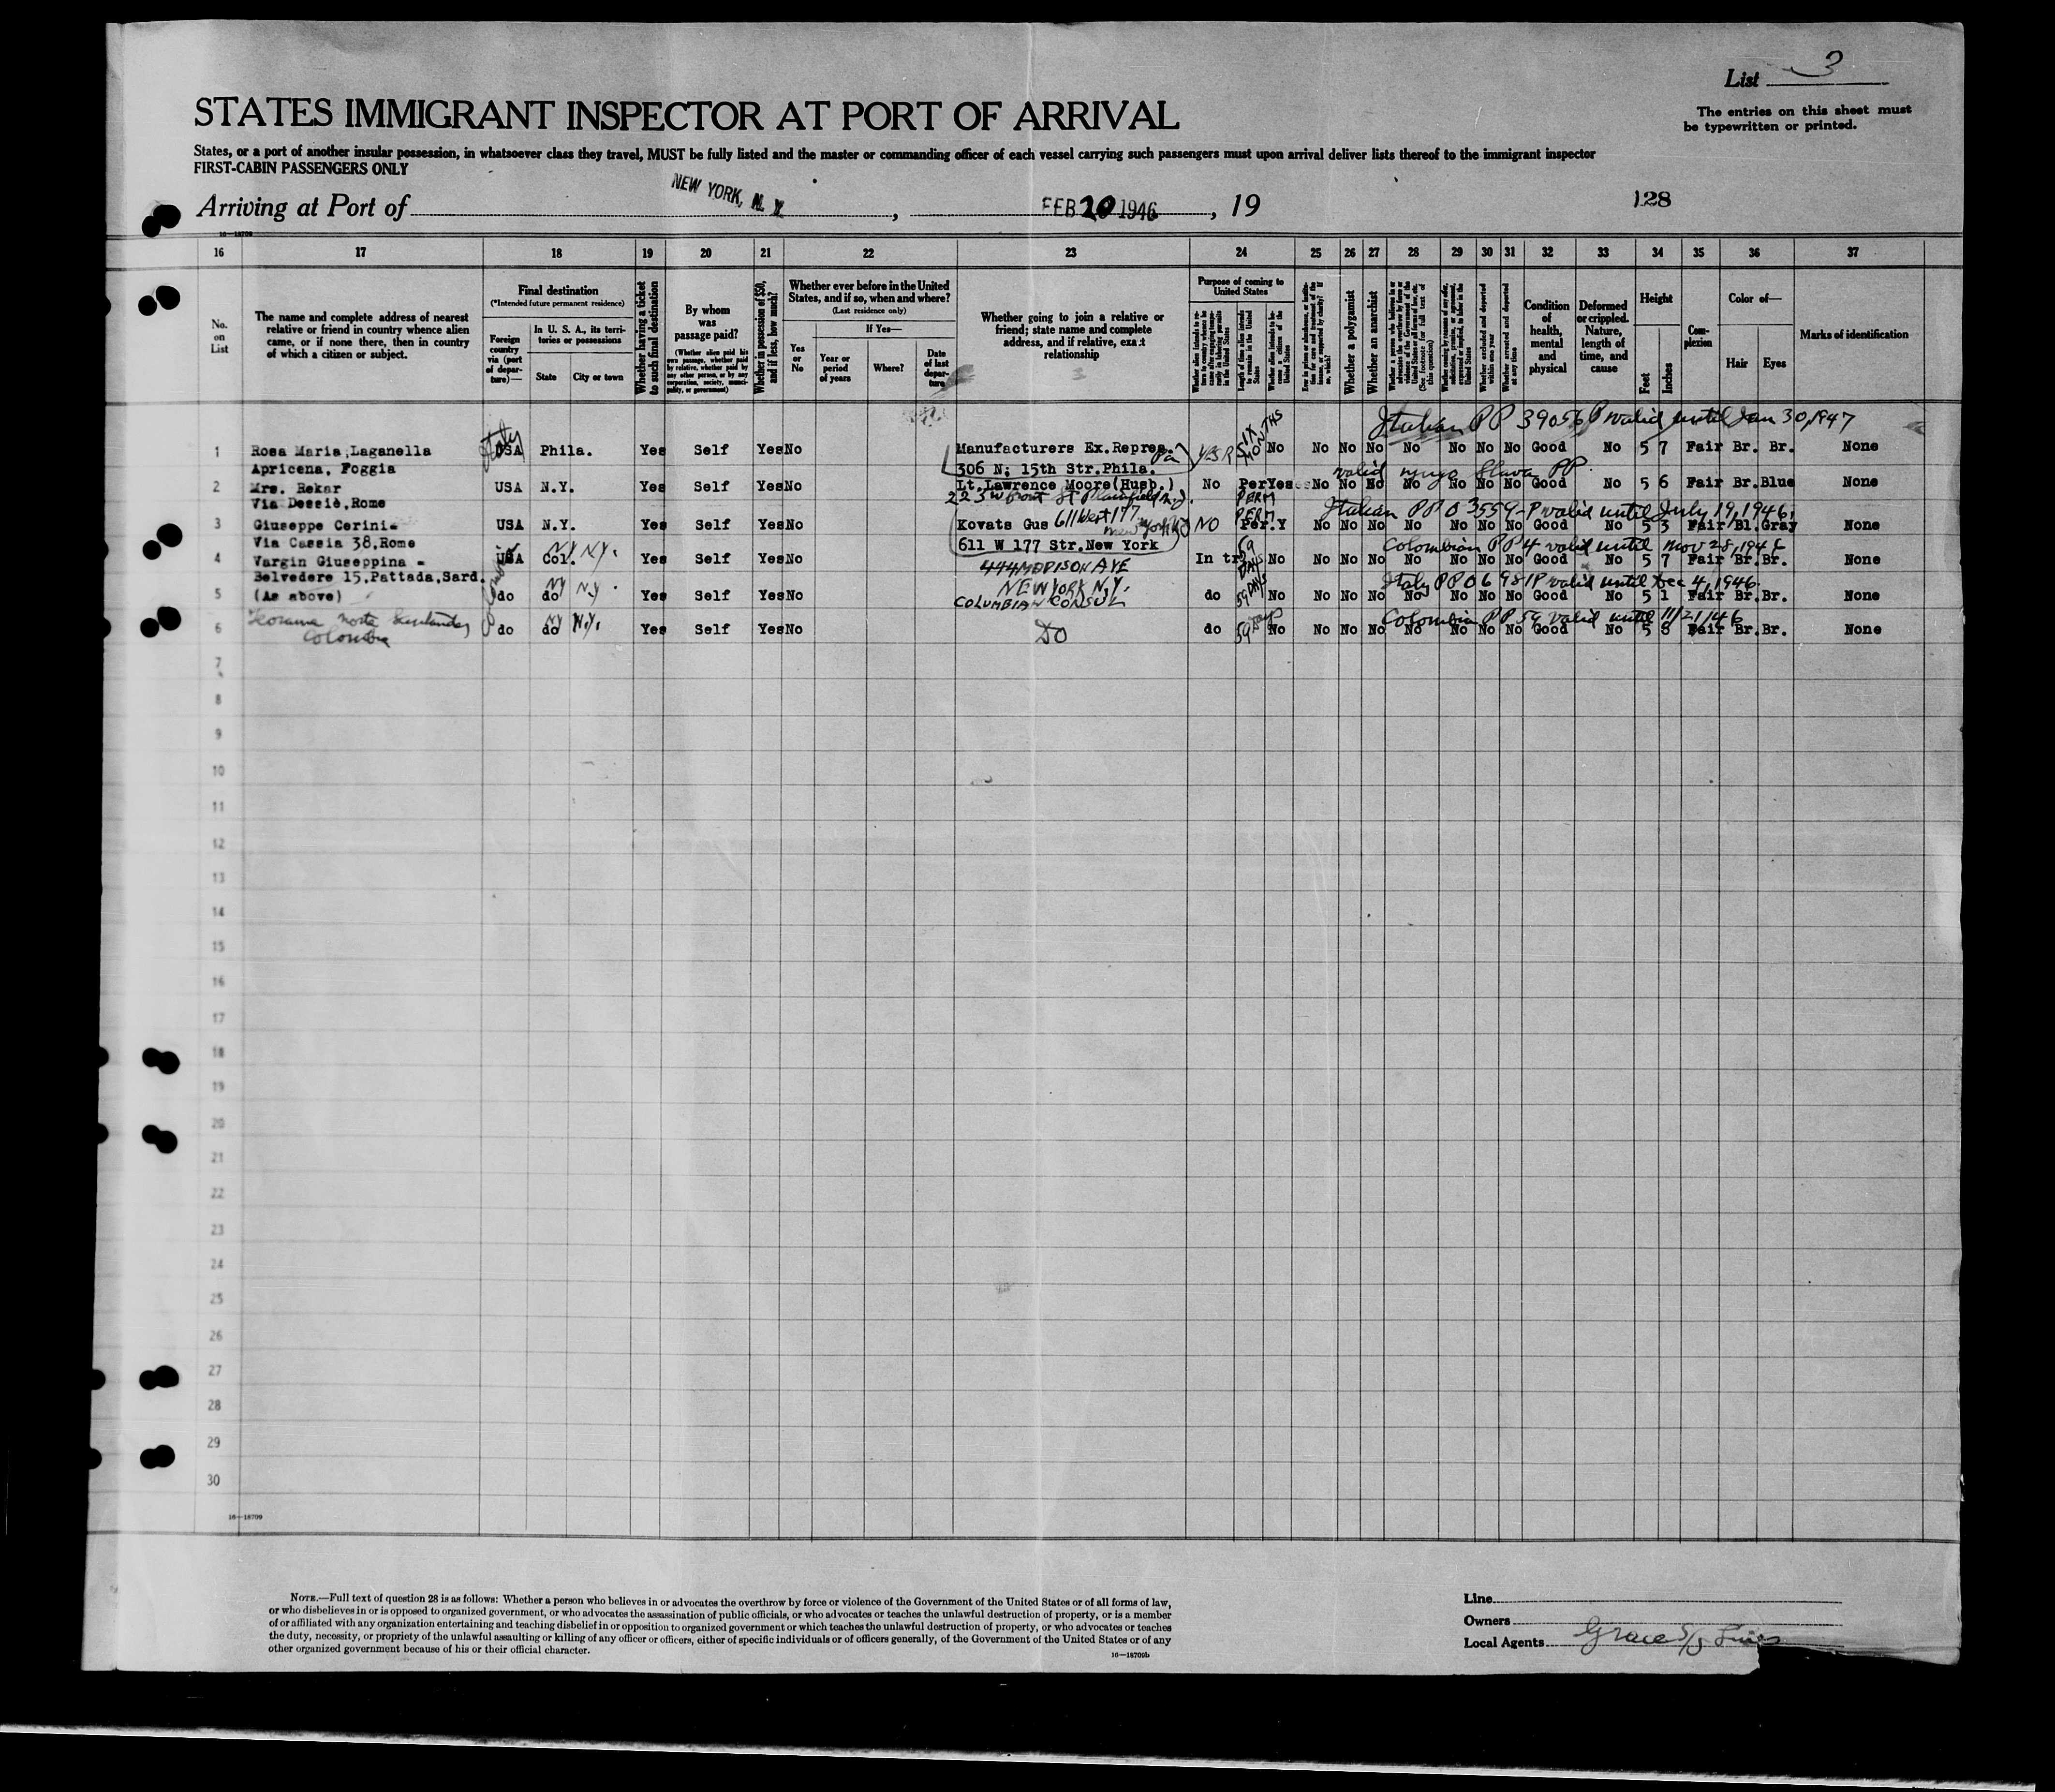 List 3
STATES IMMIGRANT INSPECTOR AT PORT OF ARRIVAL
The entries on this sheet must
be typewritten or printed.
States, or a port of another insular possession, in whatsoever class they travel, MUST be fully listed and the master or commanding officer of each vessel carrying such passengers must upon arrival deliver lists thereof to the immigrant inspector
FIRST-CABIN PASSENGERS ONLY
Arriving at Port of NEW YORK, N. Y. , FEB 20 1946 , 19
128
16—18709
16 17 18 19 20 21 22 23 24 25 26 27 28 29 30 31 32 33 34 35 36 37
No. on List
The name and complete address of nearest relative or friend in country whence alien came, or if none there, then in country of which a citizen or subject.
Final destination
(*Intended future permanent residence)
Foreign country via (port of departure)—
In U. S. A., its territories or possessions
State City or town
Whether having a ticket to such final destination
By whom was passage paid?
(Whether alien paid his own passage, whether paid by relative, whether paid by any other person, or by any corporation, society, municipality, or government)
Whether in possession of $50, and if less, how much?
Whether ever before in the United States, and if so, when and where?
(Last residence only)
Yes or No
If Yes—
Year or period of years Where? Date of last departure
Whether going to join a relative or friend; state name and complete address, and if relative, exact relationship
Purpose of coming to United States
Length of time alien intends to remain in the United States
Whether alien intends to become a citizen of the United States
Whether a polygamist
Whether an anarchist
(See footnote for full text of this question)
Whether arrested and deported at any time
Condition of health, mental and physical
Deformed or crippled. Nature, length of time, and cause
Height
Feet Inches
Complexion
Color of—
Hair Eyes
Marks of identification
Italian PP 39056 P valid until Jan 30, 1947
1 Rosa Maria Laganella Italy USA Phila. Yes Self Yes No Manufacturers Ex.Repres. Pa YES SIX MONTHS No No No No No No No No Good No 5 7 Fair Br. Br. None
Apricena, Foggia 306 N. 15th Str.Phila. valid PP.
2 Mrs. Rekar USA N.Y. Yes Self Yes No Lt.Lawrence Moore(Husb.) No Per Yes No No No No No No No Good No 5 6 Fair Br. Blue None
Via Dessiè,Rome 223 W Front St Plainfield N.J. PERM Italian PP 03559-P valid until July 19, 1946.
3 Giuseppe Cerini- USA N.Y. Yes Self Yes No Kovats Gus 611 West 177 New York NO PERM Per. Y No No No No No No No Good No 5 3 Fair Bl. Gray None
Via Cassia 38,Rome 611 W 177 Str.New York Colombian PP 4 valid until Nov 28, 1946
4 Vargin Giuseppina - USA Col. NY N.Y. Yes Self Yes No 444 MADISON AVE In tr. 59 DAYS No No No No No No No No Good No 5 7 Fair Br. Br. None
Belvedere 15,Pattada,Sard. NEW YORK N.Y. Italy PP 06981P valid until Dec 4, 1946
5 (As above) do do NY N.Y. Yes Self Yes No COLUMBIAN CONSUL do 59 DAYS No No No No No No No No Good No 5 1 Fair Br. Br. None
Norte Santander Colombian PP 59 valid until 11/21/46
6 Colombia do do NY N.Y. Yes Self Yes No DO do 59 days No No No No No No No No Good No 5 8 Fair Br. Br. None
7
8
9
10
11
12
13
14
15
16
17
18
19
20
21
22
23
24
25
26
27
28
29
30
16—18709
NOTE.—Full text of question 28 is as follows: Whether a person who believes in or advocates the overthrow by force or violence of the Government of the United States or of all forms of law,
or who disbelieves in or is opposed to organized government, or who advocates the assassination of public officials, or who advocates or teaches the unlawful destruction of property, or is a member
of or affiliated with any organization entertaining and teaching disbelief in or opposition to organized government or which teaches the unlawful destruction of property, or who advocates or teaches
the duty, necessity, or propriety of the unlawful assaulting or killing of any officer or officers, either of specific individuals or of officers generally, of the Government of the United States or of any
other organized government because of his or their official character.
16—18709b
Line
Owners
Local Agents Grace S/S Lines